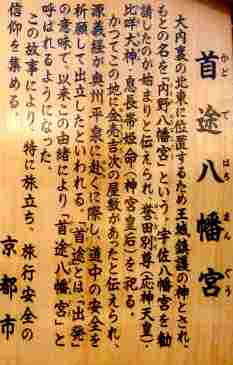 首途八幡宮
かどではちまんぐう
大内裏の北東に位置するため王城鎮護の神とされ、
もとの名を「内野八幡宮」という。宇佐八幡宮を勧
請したのが始まりと伝えられ、誉田別尊(応神天皇)・
比咩大神、息長帯姫命(神宮皇后)を祀る。
かつてこの地に金売吉次の屋敷があったと伝えられ、
源義経が奥州平泉に赴くに際し、道中の安全を
祈願して出立したといわれる。「首途」とは「出発」
の意味で、以来この由緒により「首途八幡宮」と
呼ばれるようになった。
この故事により、特に旅立ち、旅行安全の
信仰を集める。
京都市